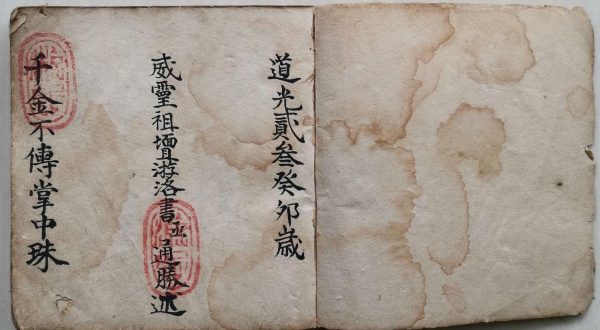 道光貳叁癸卯歲
威靈祖壇游洛書玉通勝述
千金不傳掌中珠